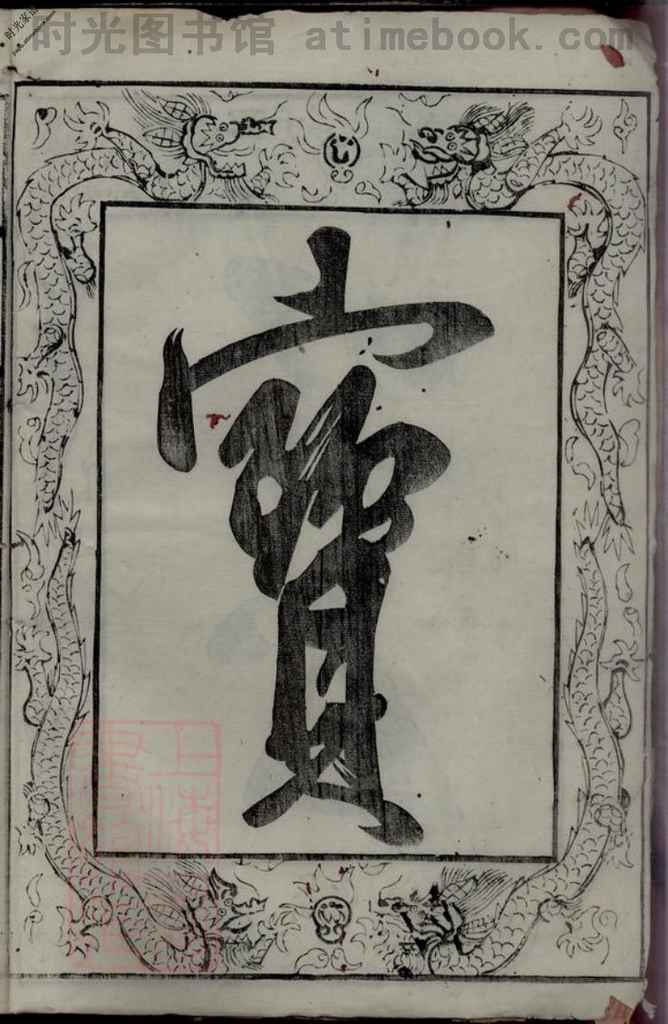 时光图书馆 atimebook.com
寶